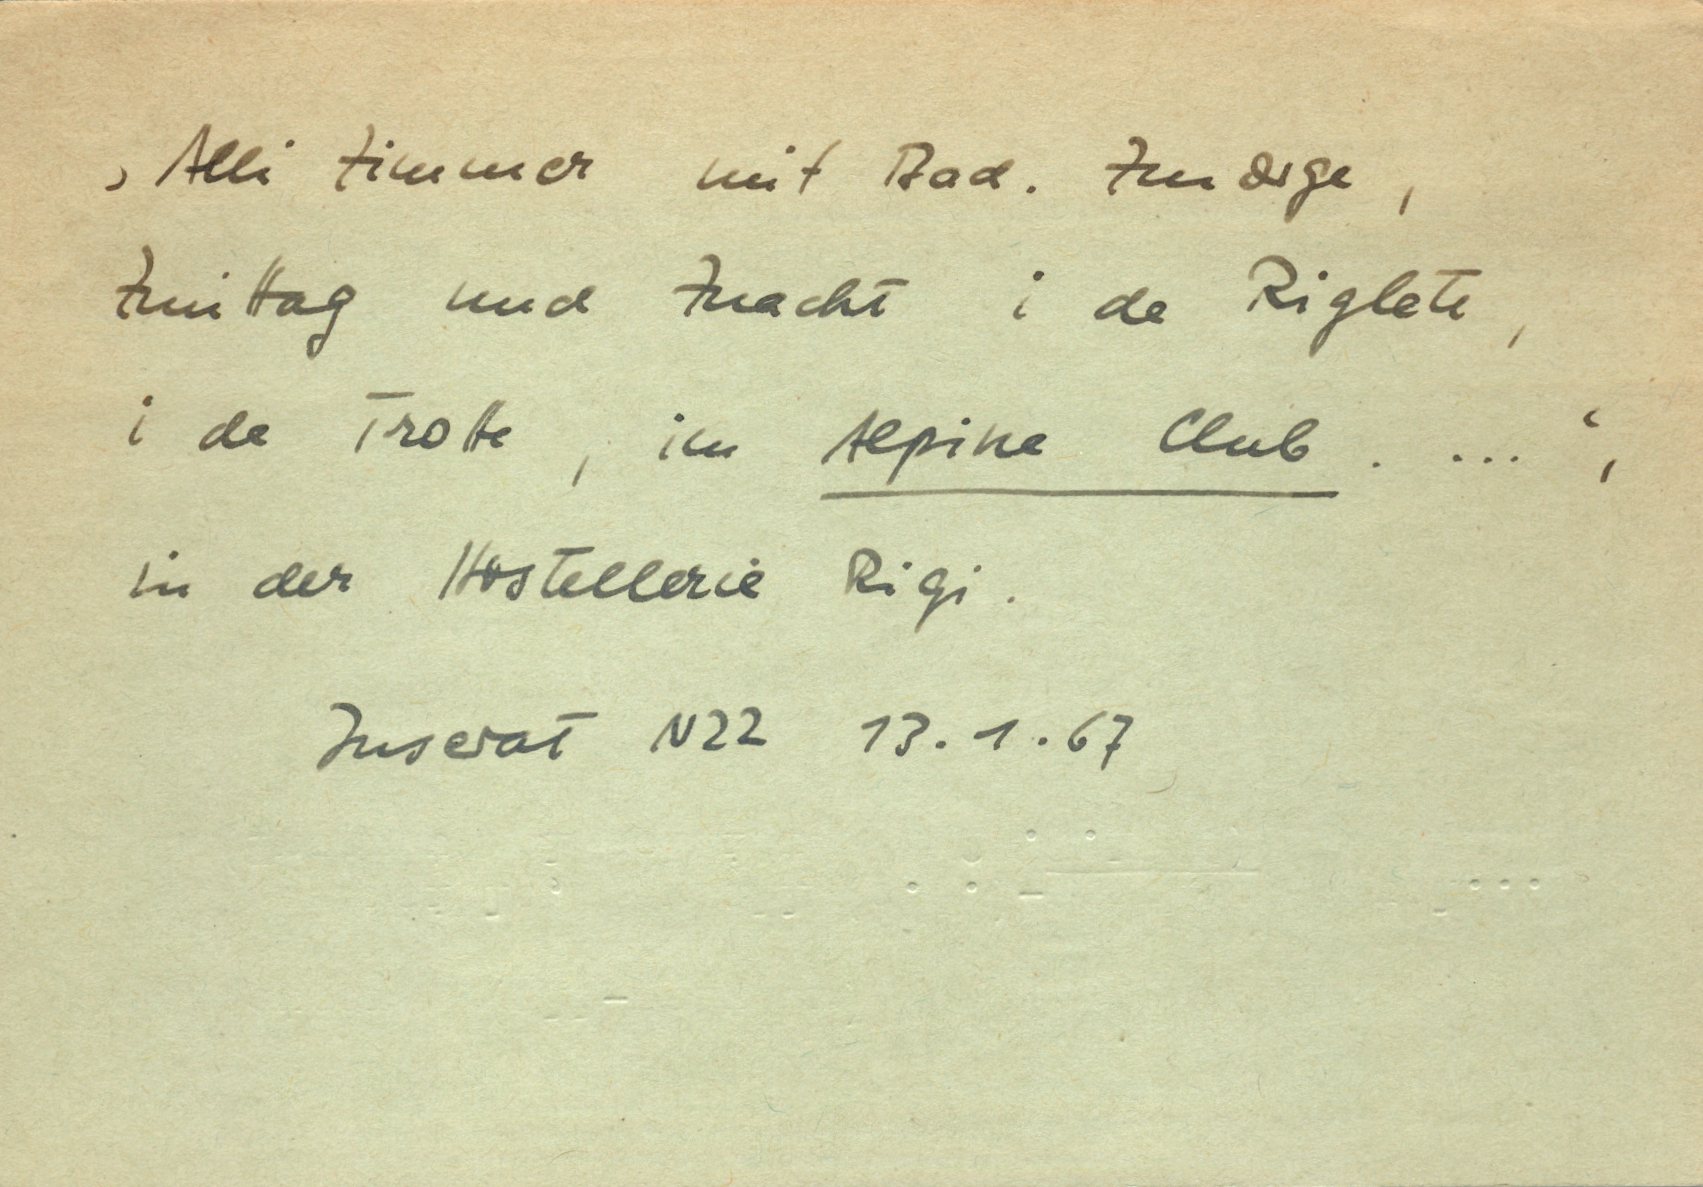 ‚Alli Zimmer mit Bad. Zmorge,
Zmittag und Znacht i de Riglete,
i de Trotte, im Alpine Club. ...‘,
in der Hostellerie Rigi.
Inserat NZZ 13.1.67